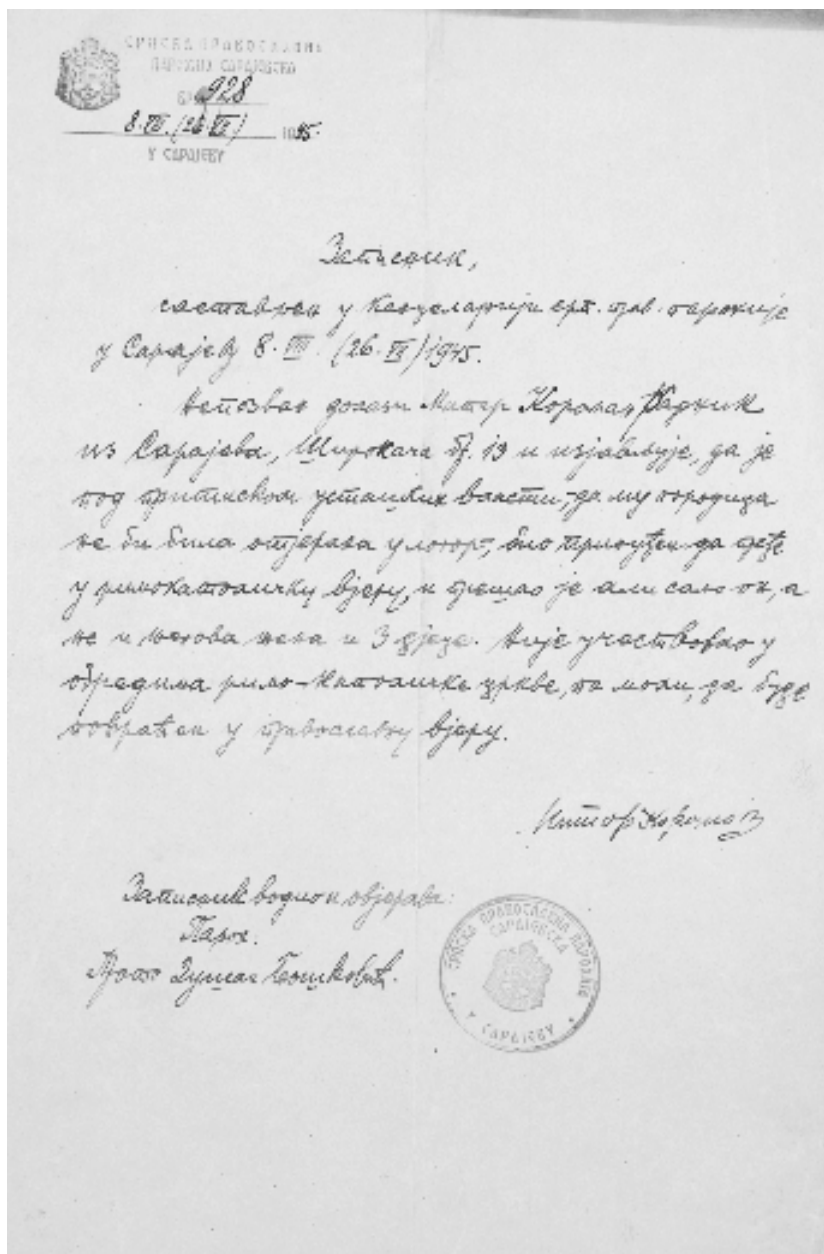 СРПСКА ПРАВОСЛАВНА
ПАРОХИЈА САРАЈЕВСКА
Бр. 928
8. VIII. (26. VII) 1945.
У САРАЈЕВУ
Записник,
састављен у Канцеларији срп. прав. парохије
у Сарајеву 8. VIII. (26. VII) 1945.
Непозван долази Митар Коромаз, Радник
из Сарајева, Широкача бр. 13 и изјављује, да је
под притиском усташких власти, да му породица
не би била отјерана у логор, био принуђен да пређе
у римокатоличку вјеру, и прешао је али само он, а
не и његова жена и 3 дјеце. Није учествовао у
обредима римо-католичке цркве, па моли, да буде
повраћен у православну вјеру.
Митар Коромаз
Записник водио и овјерава:
Парох:
Прото Душан Бошковић.
СРПСКА ПРАВОСЛАВНА ПАРОХИЈА
САРАЈЕВСКА
У САРАЈЕВУ